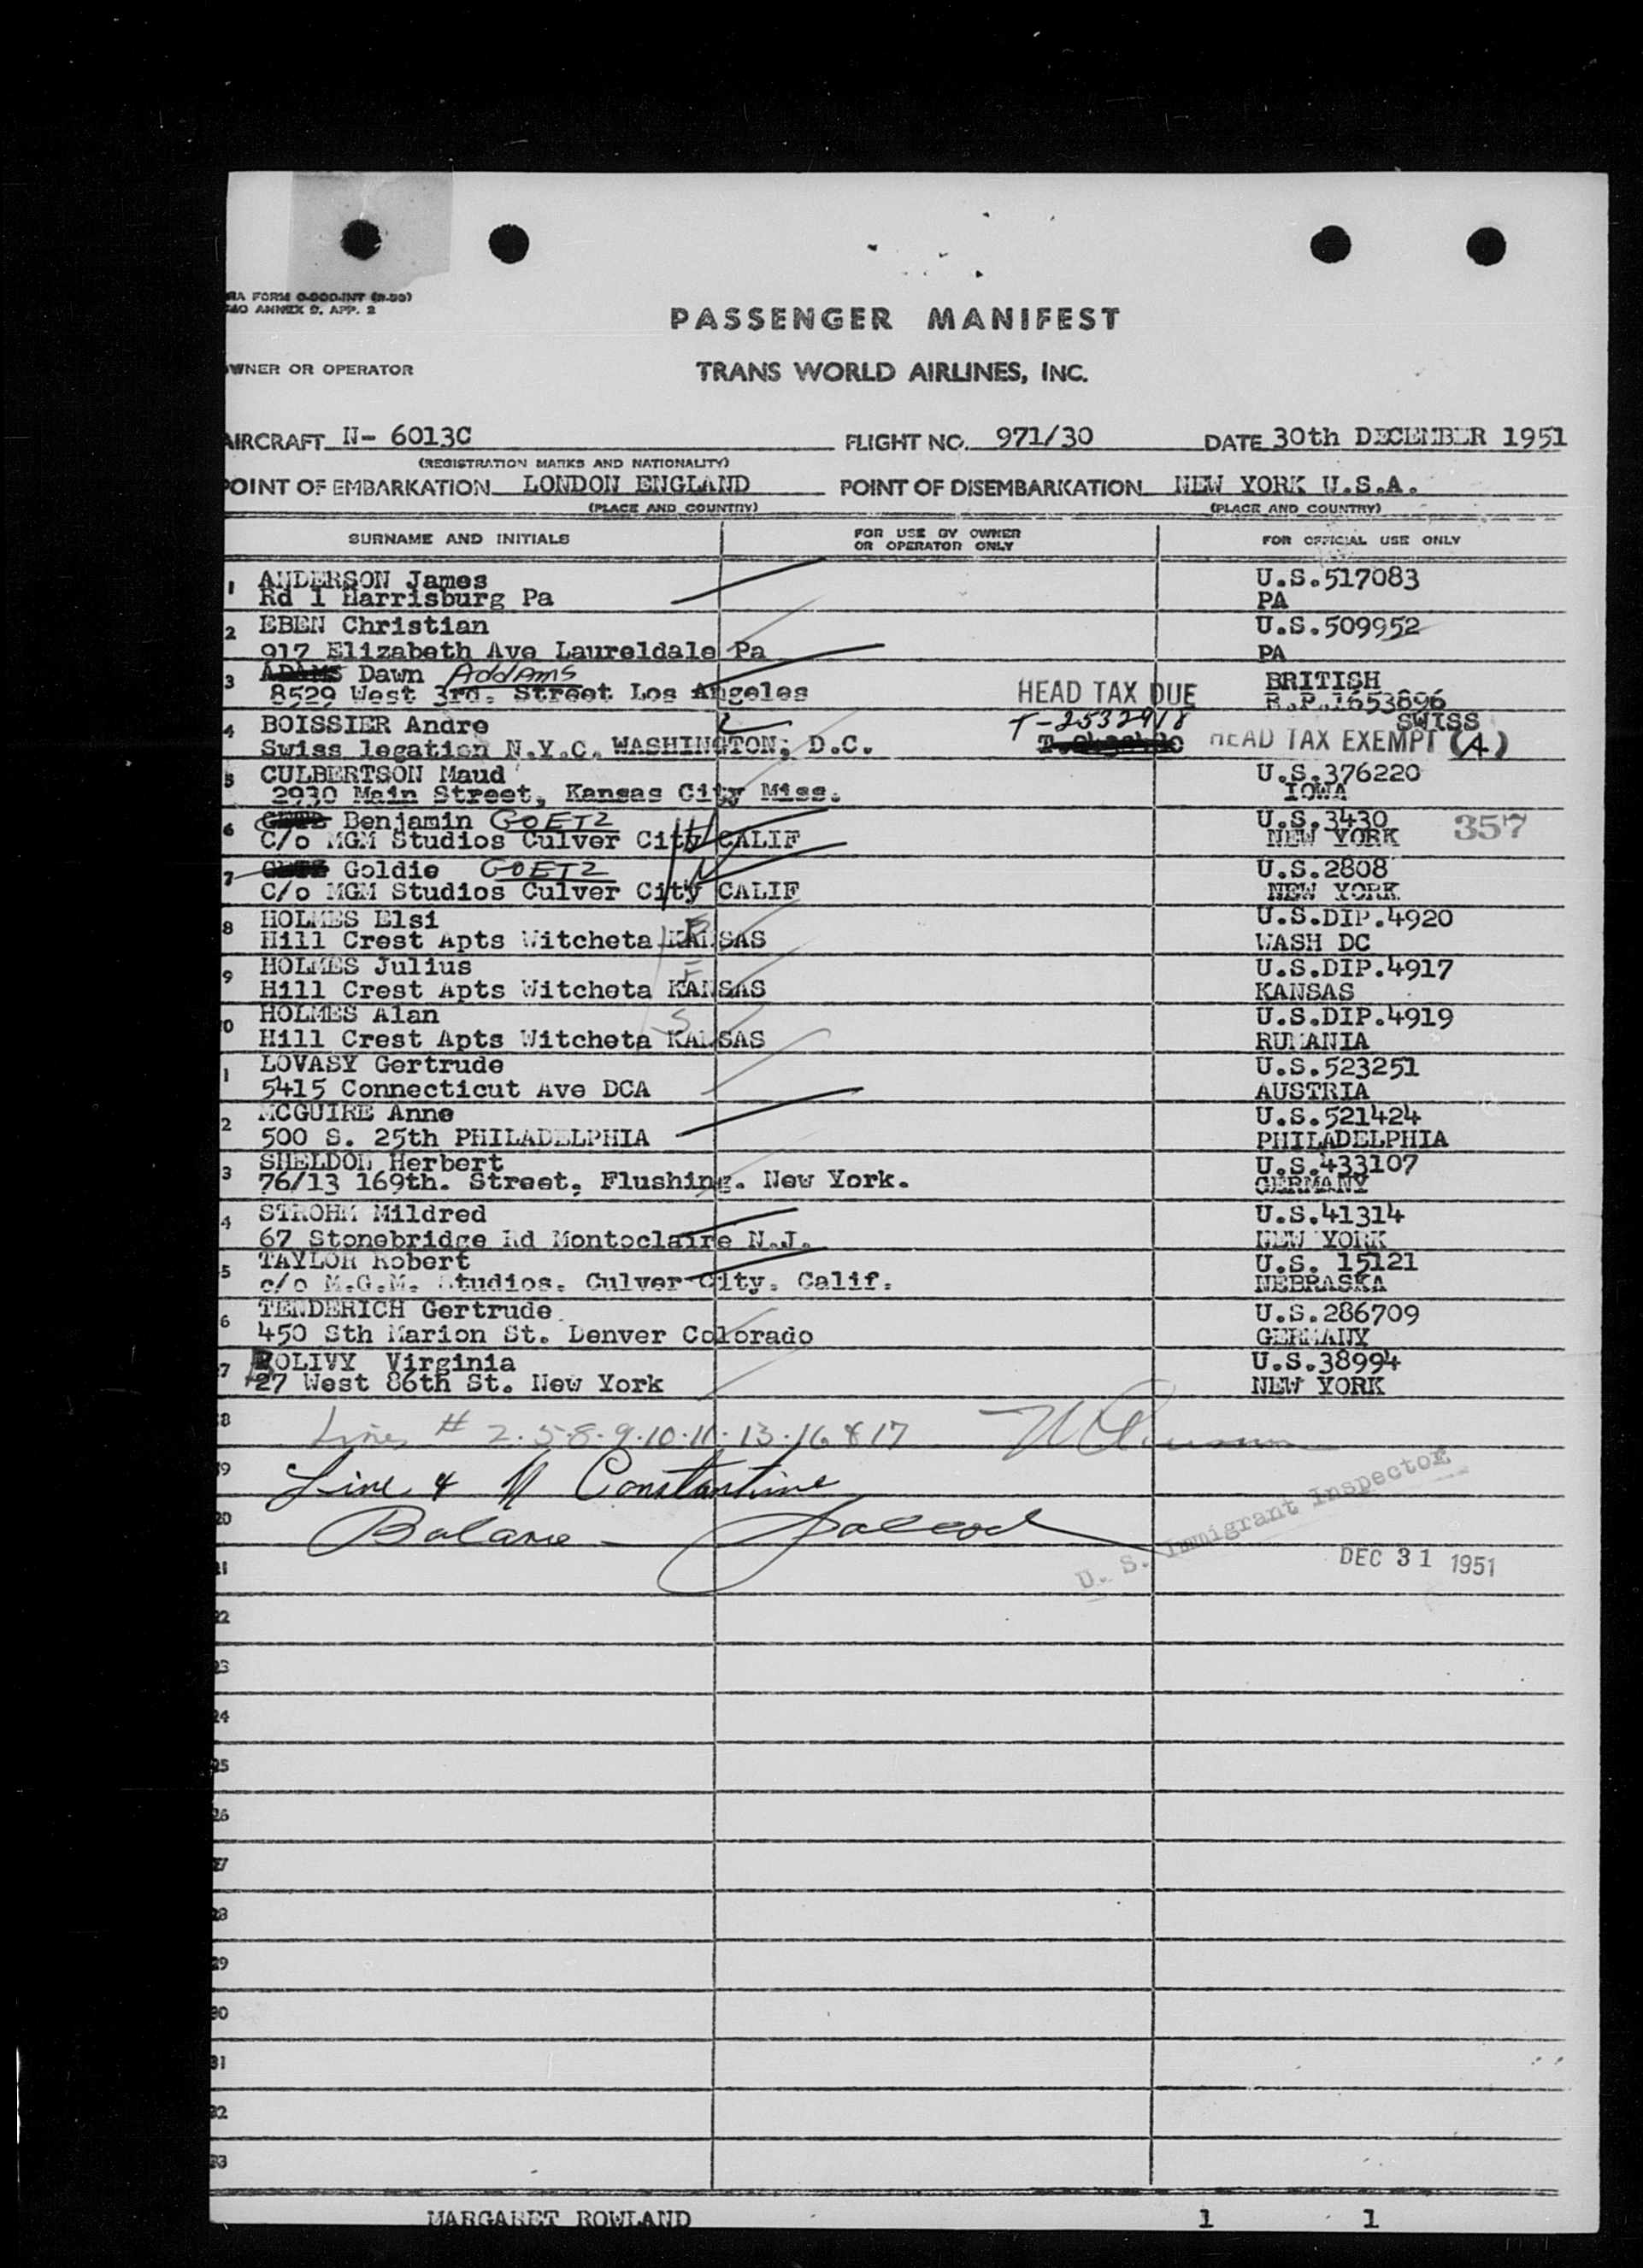 RA FORM 0-900-INT (9-50)
AO ANNEX 9, APP. 2
PASSENGER MANIFEST
WNER OR OPERATOR
TRANS WORLD AIRLINES, INC.
AIRCRAFT N- 6013C FLIGHT NO. 971/30 DATE 30th DECEMBER 1951
(REGISTRATION MARKS AND NATIONALITY)
POINT OF EMBARKATION LONDON ENGLAND POINT OF DISEMBARKATION NEW YORK U.S.A.
(PLACE AND COUNTRY) (PLACE AND COUNTRY)
SURNAME AND INITIALS FOR USE BY OWNER OR OPERATOR ONLY FOR OFFICIAL USE ONLY
1 ANDERSON James U.S.517083
Rd 1 Harrisburg Pa PA
2 EBEN Christian U.S.509952
917 Elizabeth Ave Laureldale Pa PA
3 ADAMS Dawn Addams BRITISH
8529 West 3rd. Street Los Angeles HEAD TAX DUE B.P.1653896
4 BOISSIER Andre T-2532918 SWISS
Swiss legation N.Y.C. WASHINGTON, D.C. HEAD TAX EXEMPT (A)
5 CULBERTSON Maud U.S.376220
2930 Main Street, Kansas City Miss. IOWA
6 Benjamin GOETZ U.S.3430
C/o MGM Studios Culver City CALIF NEW YORK 357
7 Goldie GOETZ U.S.2808
C/o MGM Studios Culver City CALIF NEW YORK
8 HOLMES Elsi U.S.DIP.4920
Hill Crest Apts Witcheta KANSAS WASH DC
9 HOLMES Julius U.S.DIP.4917
Hill Crest Apts Witcheta KANSAS KANSAS
0 HOLMES Alan U.S.DIP.4919
Hill Crest Apts Witcheta KANSAS RUMANIA
1 LOVASY Gertrude U.S.523251
5415 Connecticut Ave DCA AUSTRIA
2 MCGUIRE Anne U.S.521424
500 S. 25th PHILADELPHIA PHILADELPHIA
3 SHELDON Herbert U.S.433107
76/13 169th. Street, Flushing. New York. GERMANY
4 STROHM Mildred U.S.41314
67 Stonebridge Rd Montoclaire N.J. NEW YORK
5 TAYLOR Robert U.S. 15121
c/o M.G.M. Studios. Culver City. Calif. NEBRASKA
6 TENDERICH Gertrude U.S.286709
450 Sth Marion St. Denver Colorado GERMANY
7 BOLIVY Virginia U.S.38994
27 West 86th St. New York NEW YORK
18 Lines # 2.5.8.9.10.11.13.16 & 17
19 Line 4 Constantine
20 Balance
U. S. Immigrant Inspector
21 DEC 31 1951
22
23
24
25
26
27
28
29
30
31
32
33
MARGARET ROWLAND 1 1